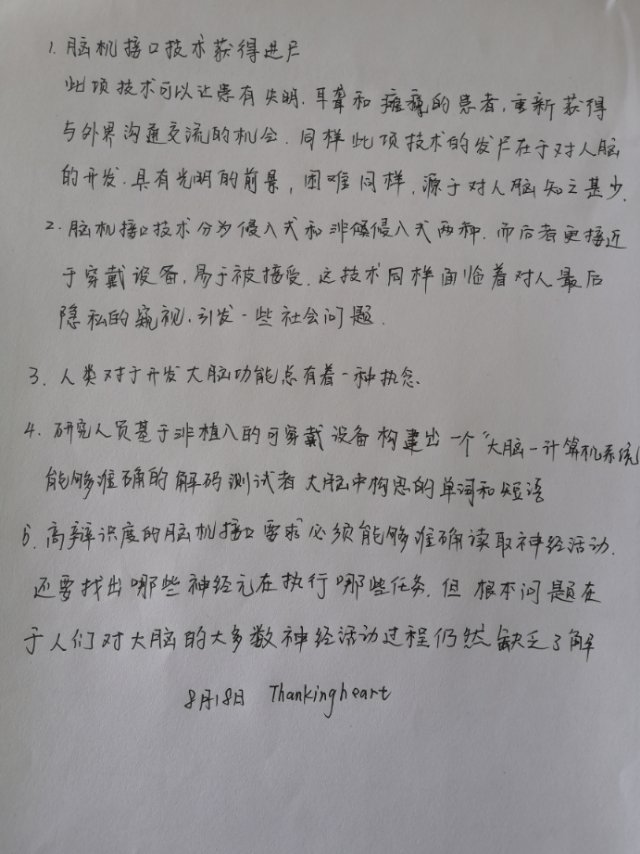 1. 脑机接口技术获得进展
此项技术可以让患有失明、耳聋和瘫痪的患者,重新获得
与外界沟通交流的机会. 同样此项技术的发展在于对人脑
的开发. 具有光明的前景, 困难同样, 源于对人脑知之甚少.
2. 脑机接口技术分为侵入式和非侵入式两种. 而后者更接近
于穿戴设备, 易于被接受. 这技术同样面临着对人最后
隐私的窥视. 引发一些社会问题.
3. 人类对于开发大脑功能总有着一种执念.
4. 研究人员基于非植入的可穿戴设备构建出一个“大脑-计算机系统
能够准确的解码测试者大脑中构思的单词和短语
5. 高辩识度的脑机接口要求必须能够准确读取神经活动.
还要找出哪些神经元在执行哪些任务. 但根本问题在
于人们对大脑的大多数神经活动过程仍然缺乏了解
8月18日 Thankingheart